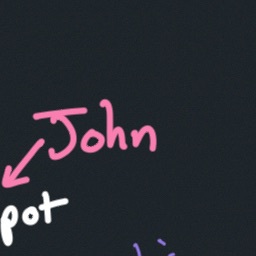 John
pot